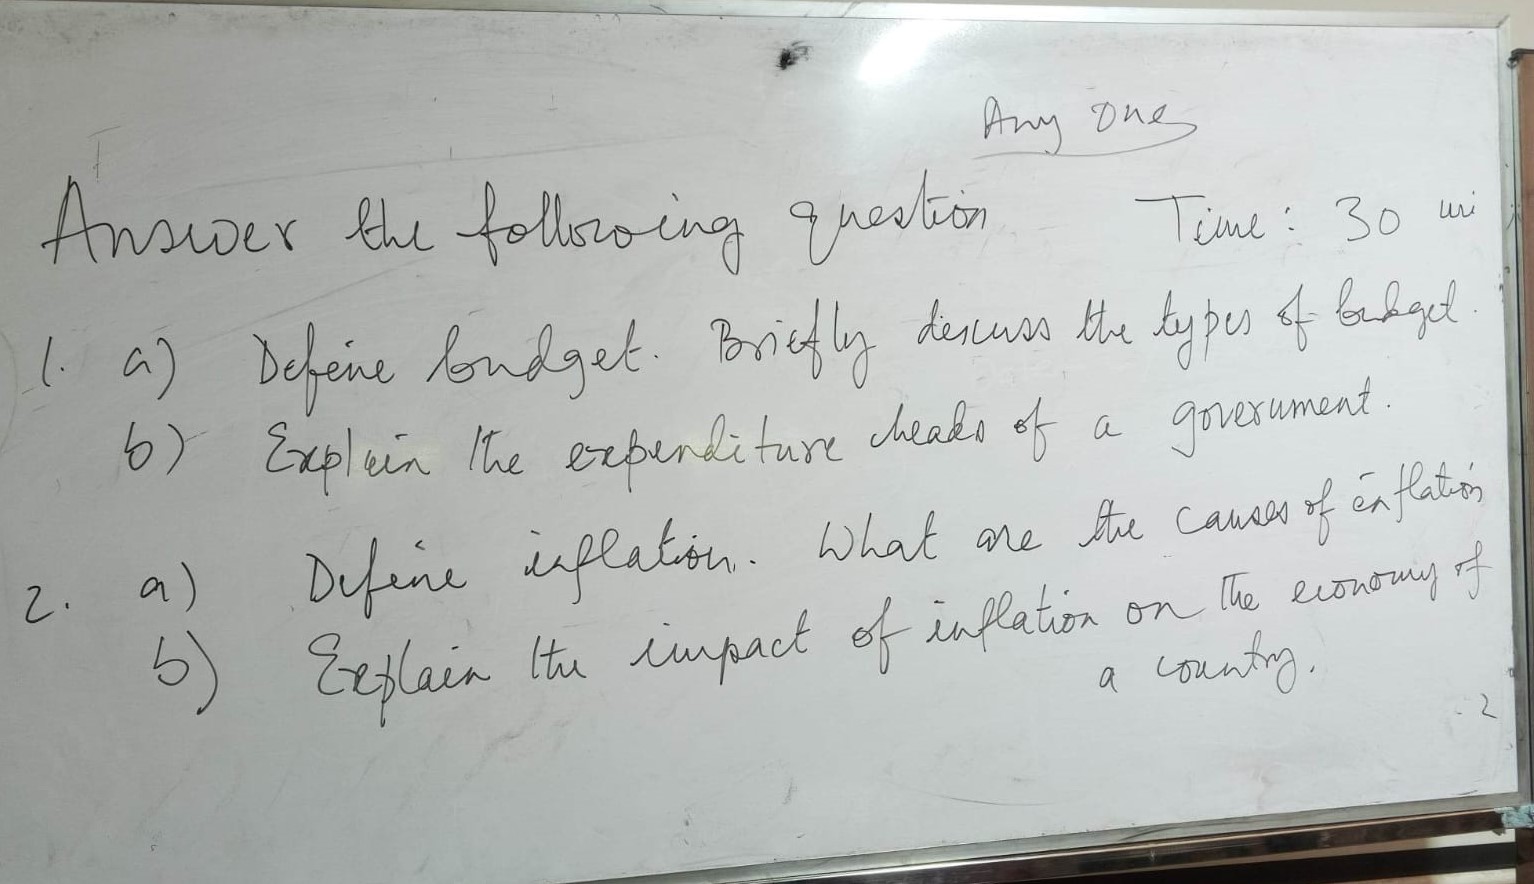 Any one
Answer the following question Time: 30
1. a) Define budget. Briefly discuss the types of budget.
b) Explain the expenditure heads of a government.
2. a) Define inflation. What are the causes of inflation
b) Explain the impact of inflation on the economy of
a country.
2